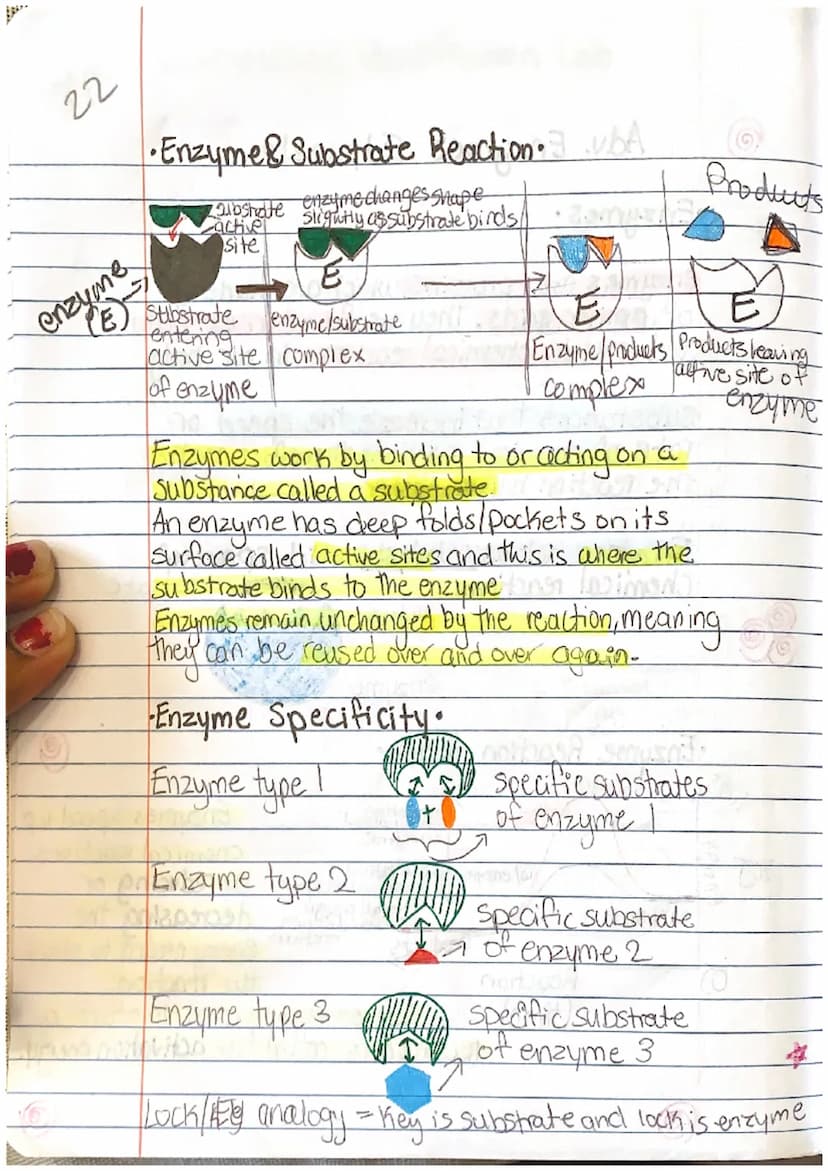 22
·Enzyme & Substrate Reaction·
Products
substrate
active
site
enzyme changes shape
slightly as substrate binds
enzyme
(E)
E
E
E
Substrate
entering
active site
of enzyme
enzyme/substrate
complex
Enzyme/products
complex
Products leaving
active site of
enzyme
Enzymes work by binding to or acting on a
substance called a substrate.
An enzyme has deep folds/pockets on its
surface called active sites and this is where the
substrate binds to the enzyme
Enzymes remain unchanged by the reaction, meaning
they can be reused over and over again.
·Enzyme Specificity·
Enzyme type 1
+
specific substrates
of enzyme 1
Enzyme type 2
specific substrate
of enzyme 2
Enzyme type 3
specific substrate
of enzyme 3
Lock/Key analogy = Key is substrate and lock is enzyme